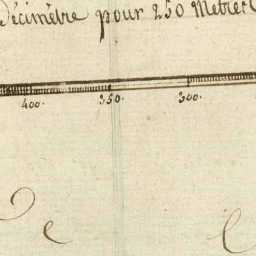 Décimètre pour 250 Metres
400. 350. 300.
e